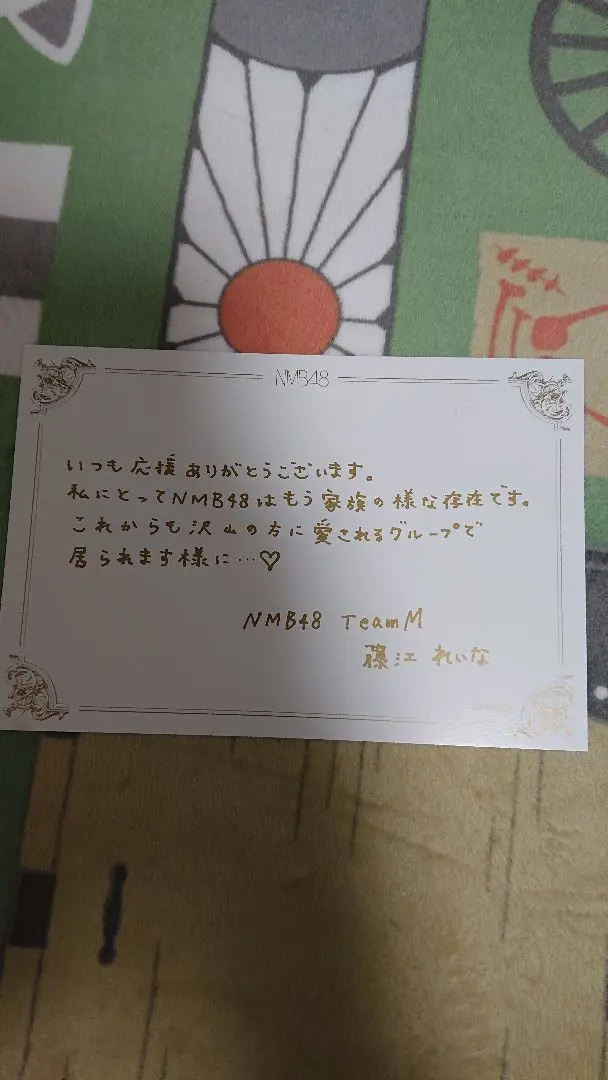 NMB48
いつも応援ありがとうございます。
私にとってNMB48はもう家族の様な存在です。
これからも沢山の方に愛されるグループで
居られます様に…♡
NMB48 TeamM
藤江 れいな